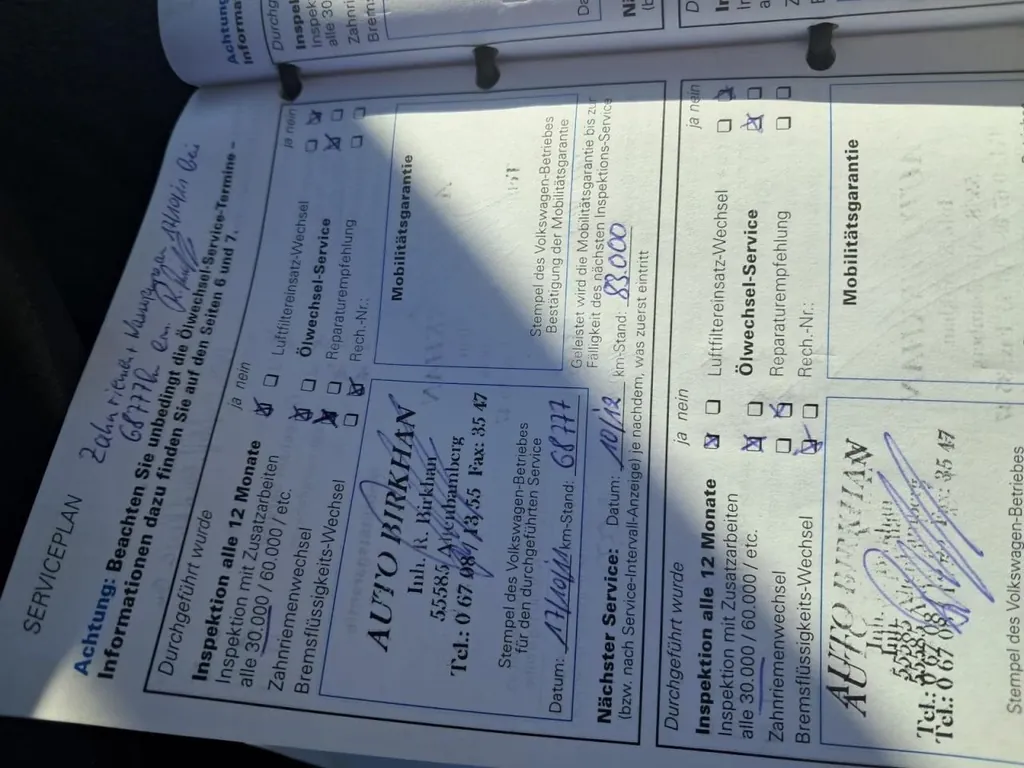 SERVICEPLAN
Zahnriemen
68777km
Achtung: Beachten Sie unbedingt die Ölwechsel-Service-Termine –
Informationen dazu finden Sie auf den Seiten 6 und 7.
Durchgeführt wurde
ja nein
ja nein
Inspektion alle 12 Monate
Inspektion mit Zusatzarbeiten
alle 30.000 / 60.000 / etc.
Zahnriemenwechsel
Bremsflüssigkeits-Wechsel
Luftfiltereinsatz-Wechsel
Ölwechsel-Service
Reparaturempfehlung
Rech.-Nr.:
AUTO BIRKHAN
Inh. R. Birkhan
55585 Altenbamberg
Tel.: 0 67 08 / 13 55 Fax: 35 47
Stempel des Volkswagen-Betriebes
für den durchgeführten Service
Datum: 17/10/11 km-Stand: 68777
Mobilitätsgarantie
Stempel des Volkswagen-Betriebes
Bestätigung der Mobilitätsgarantie
Geleistet wird die Mobilitätsgarantie bis zur
Fälligkeit des nächsten Inspektions-Service
Nächster Service: Datum: 10/12 km-Stand: 83.000
(bzw. nach Service-Intervall-Anzeige) je nachdem, was zuerst eintritt
Durchgeführt wurde
ja nein
ja nein
Inspektion alle 12 Monate
Inspektion mit Zusatzarbeiten
alle 30.000 / 60.000 / etc.
Zahnriemenwechsel
Bremsflüssigkeits-Wechsel
Luftfiltereinsatz-Wechsel
Ölwechsel-Service
Reparaturempfehlung
Rech.-Nr.:
AUTO
Inh.
55585
Tel.: 0 67 08
Fax: 35 47
Stempel des Volkswagen-Betriebes
Mobilitätsgarantie